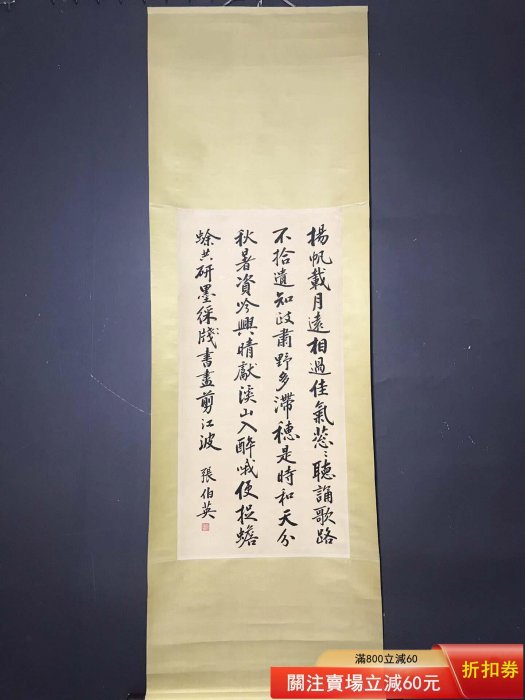 揚帆載月遠相過佳氣蔥〻聽誦歌路
不拾遺知政肅野多滯穗是時和天分
秋暑資吟興晴獻溪山入醉哦便捉蟾
蜍共研墨綵牋書盡剪江波 張伯英
滿800立減60
折扣券
關注賣場立減60元